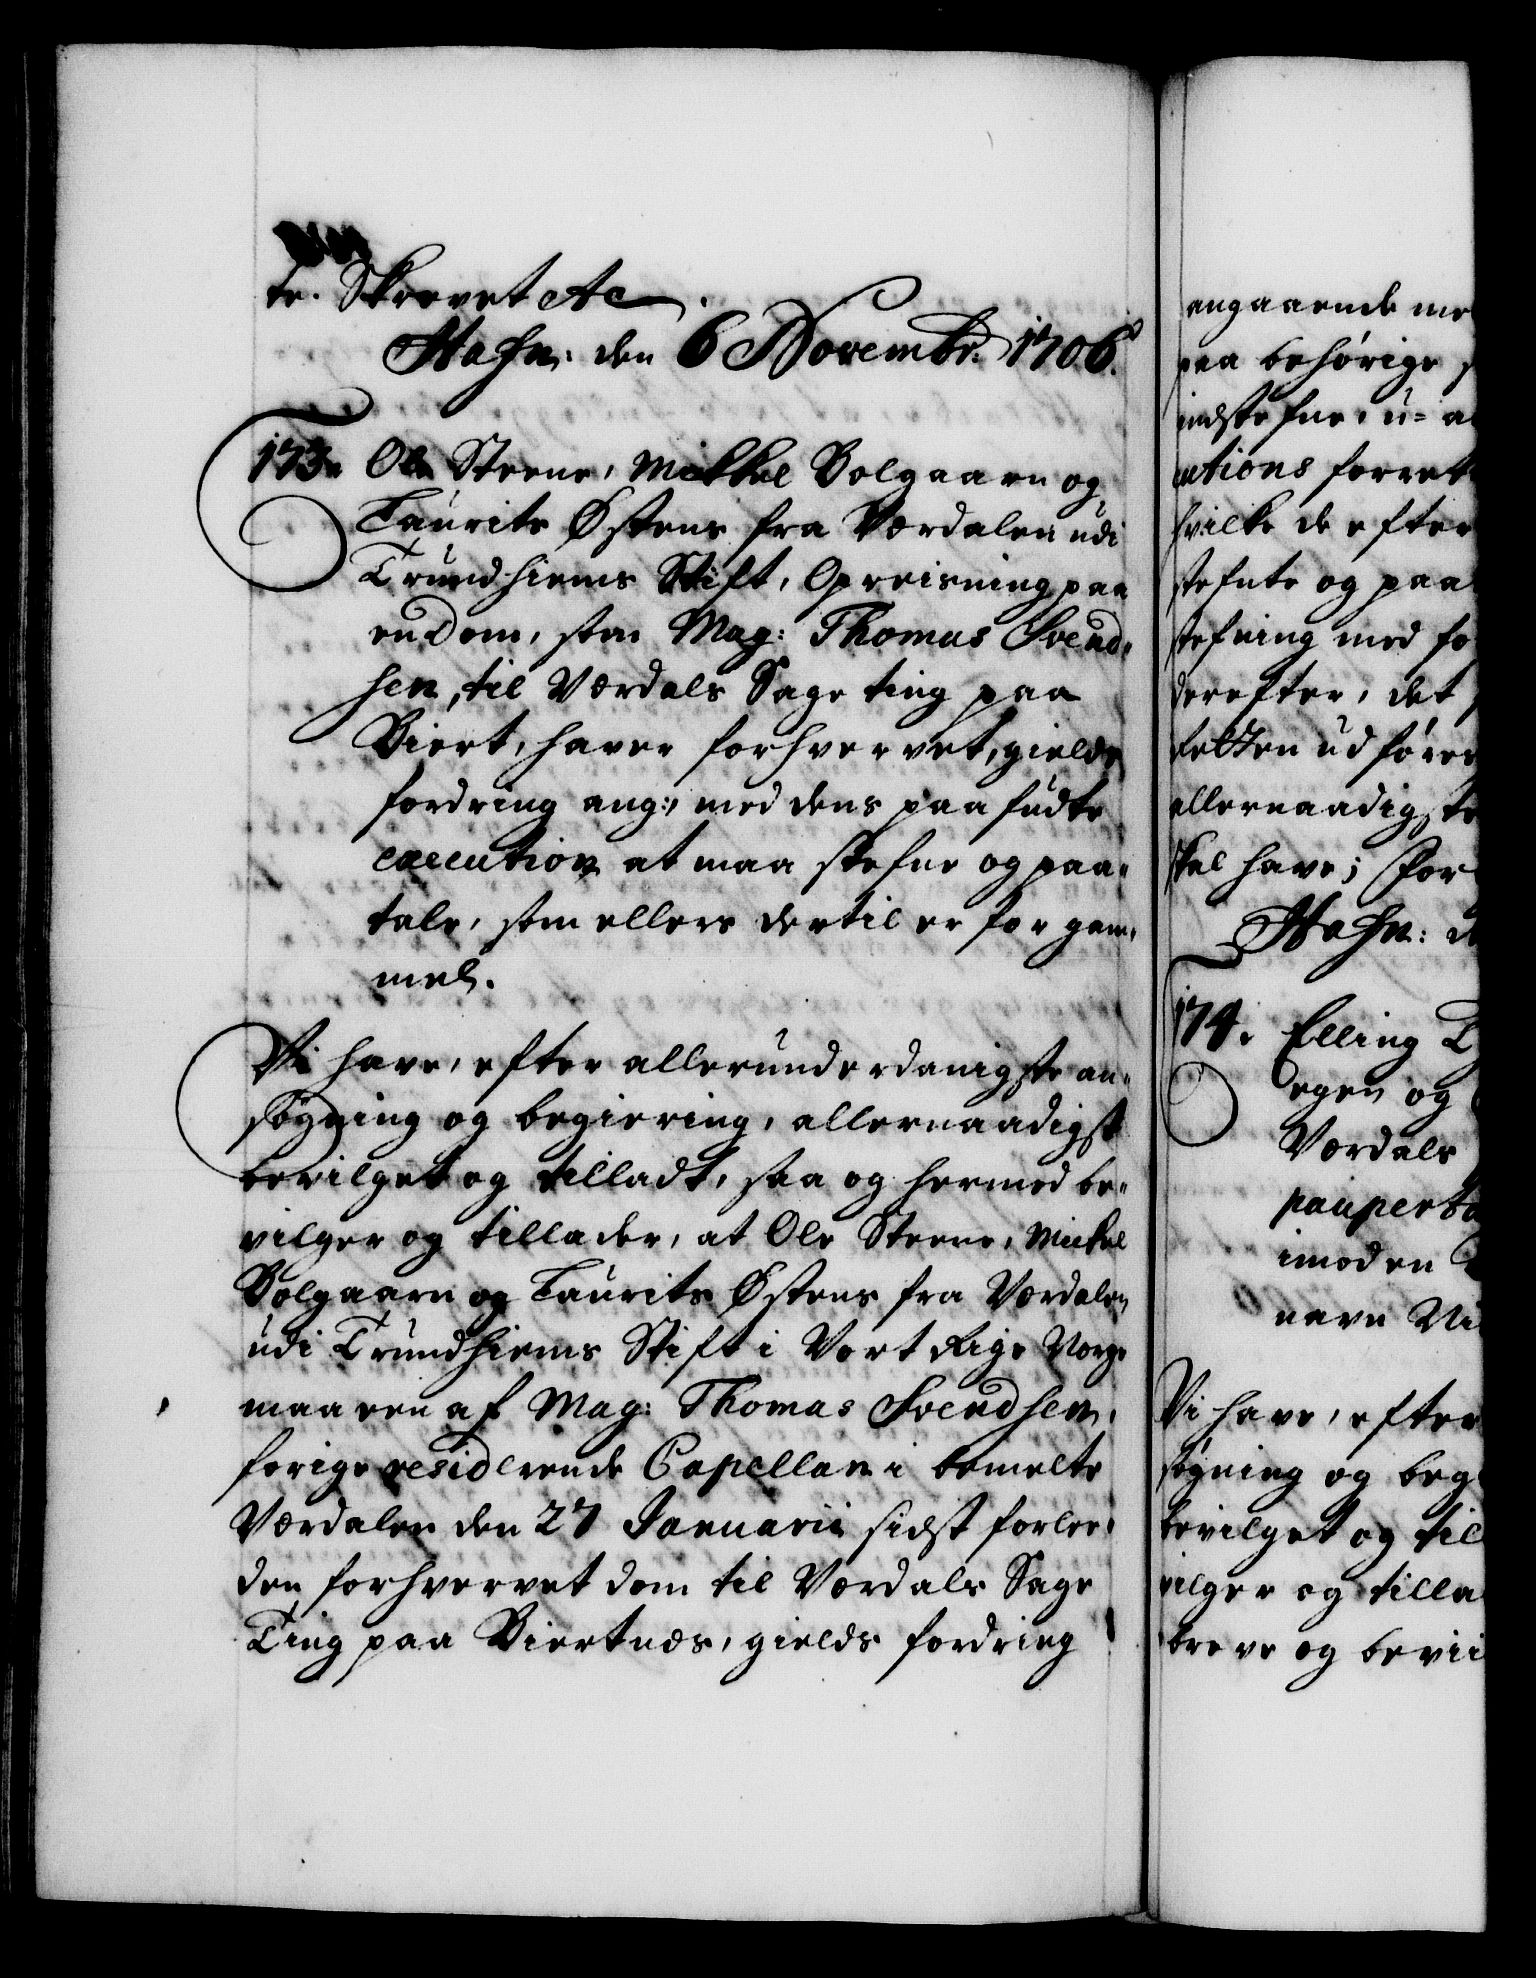 te. Skrevet etc.
Hafn: den 6 Novembr: 1706.
173. Ole Steene, Mickel Bolgaarn og
Laurits Østens fra Værdalen udi
Trundhiems Stift, Opreisning paa
en Dom, som Mag: Thomas Svend-
sen, til Værdals Sage ting paa
Biert, haver forhvervet, gields
fordring ang:, med dens paafudte
execution at maa stefne og paa-
tale, som ellers dertil er for gam-
mel.
Vi have, efter allerunderdanigste an-
søgning og begiering, allernaadigst
bevilget og tilladt, saa og hermed be-
vilger og tillader, at Ole Steene, Mickel
Bolgaarn og Laurits Østens fra Værdalen
udi Trundhiems Stift i Vort Rige Norge
maa een af Mag: Thomas Svendsen,
forige residerende Capellan i bemelte
Værdalen den 27 Januarii sidst forlee-
den forhvervet dom til Værdals Sage
Ting paa Biertnæs, gields fordring
angaaende me
paa behørige
indstefne, u- a
cutions forret
hvilke de efter
stefnte og paa
stefning med fo
derefter, det
rætten udfører
allernaadigste
skal have; For
Hafn: d
174. Elling
egen og
Værdals
pauperta
imod en
navn Ni
Vi have, efter
søgning og beg
bevilget og til
vilger og tilla
breve og bevii